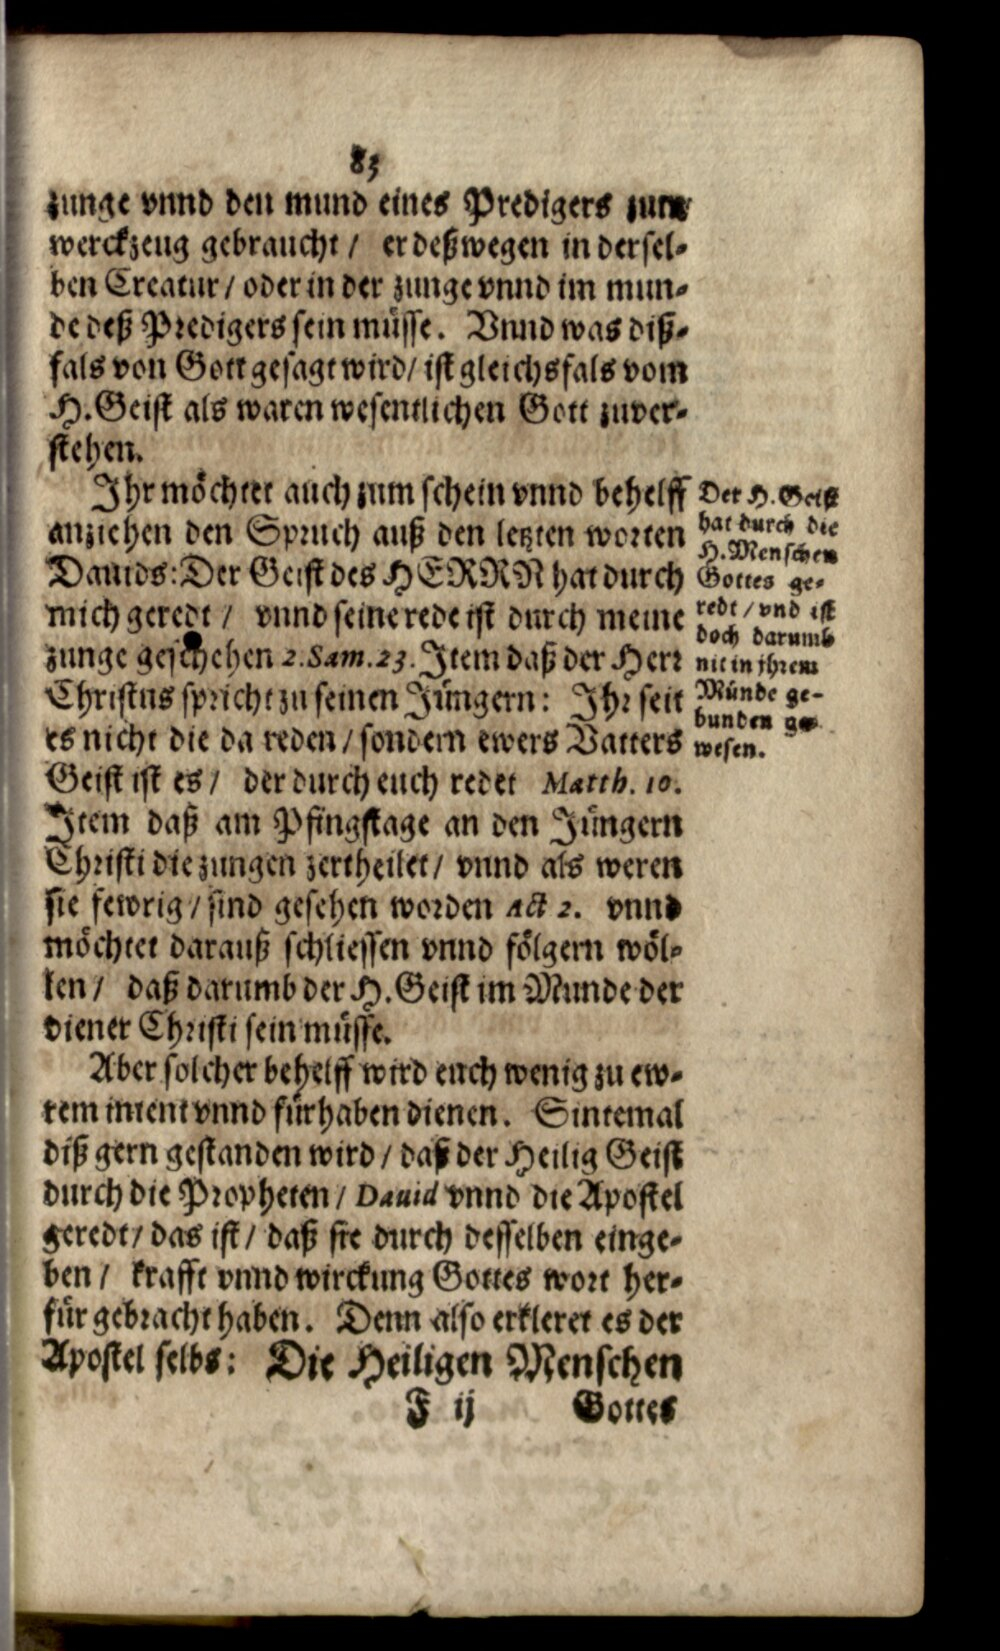 83
zunge vnnd den mund eines Predigers zum
werckzeug gebraucht / er deßwegen in dersel-
ben Creatur / oder in der zunge vnnd im mun-
de deß Predigers sein müsse. Vnnd was diß-
fals von Gott gesagt wird / ist gleichsfals vom
H. Geist als waren wesentlichen Gott zuver-
stehen.
Ihr möchtet auch zum schein vnnd behelff
anziehen den Spruch auß den letzten worten
Dauids: Der Geist des HERRN hat durch
mich geredt / vnnd seine rede ist durch meine
zunge geschehen 2. Sam. 23. Item daß der Herr
Christus spricht zu seinen Jüngern: Ihr seit
es nicht die da reden / sondern ewers Vatters
Geist ist es / der durch euch redet Matth. 10.
Item daß am Pfingstage an den Jüngern
Christi die zungen zertheilet / vnnd als weren
sie fewrig / sind gesehen worden act 2. vnnd
möchtet darauß schliessen vnnd fölgern wöl-
len / daß darumb der H. Geist im Munde der
diener Christi sein müsse.
Aber solcher behelff wird euch wenig zu ew-
rem intent vnnd fürhaben dienen. Sintemal
diß gern gestanden wird / daß der Heilig Geist
durch die Propheten / Dauid vnnd die Apostel
geredt / das ist / daß sie durch desselben einge-
ben / krafft vnnd wirckung Gottes wort her-
für gebracht haben. Denn also erkleret es der
Apostel selbs: Die Heiligen Menschen
F ij Gottes
Der H. Geist
hat durch die
H. Menschen
Gottes ge-
redt / vnd ist
doch darumb
nit in jhrem
Münde ge-
bunden ge-
wesen.